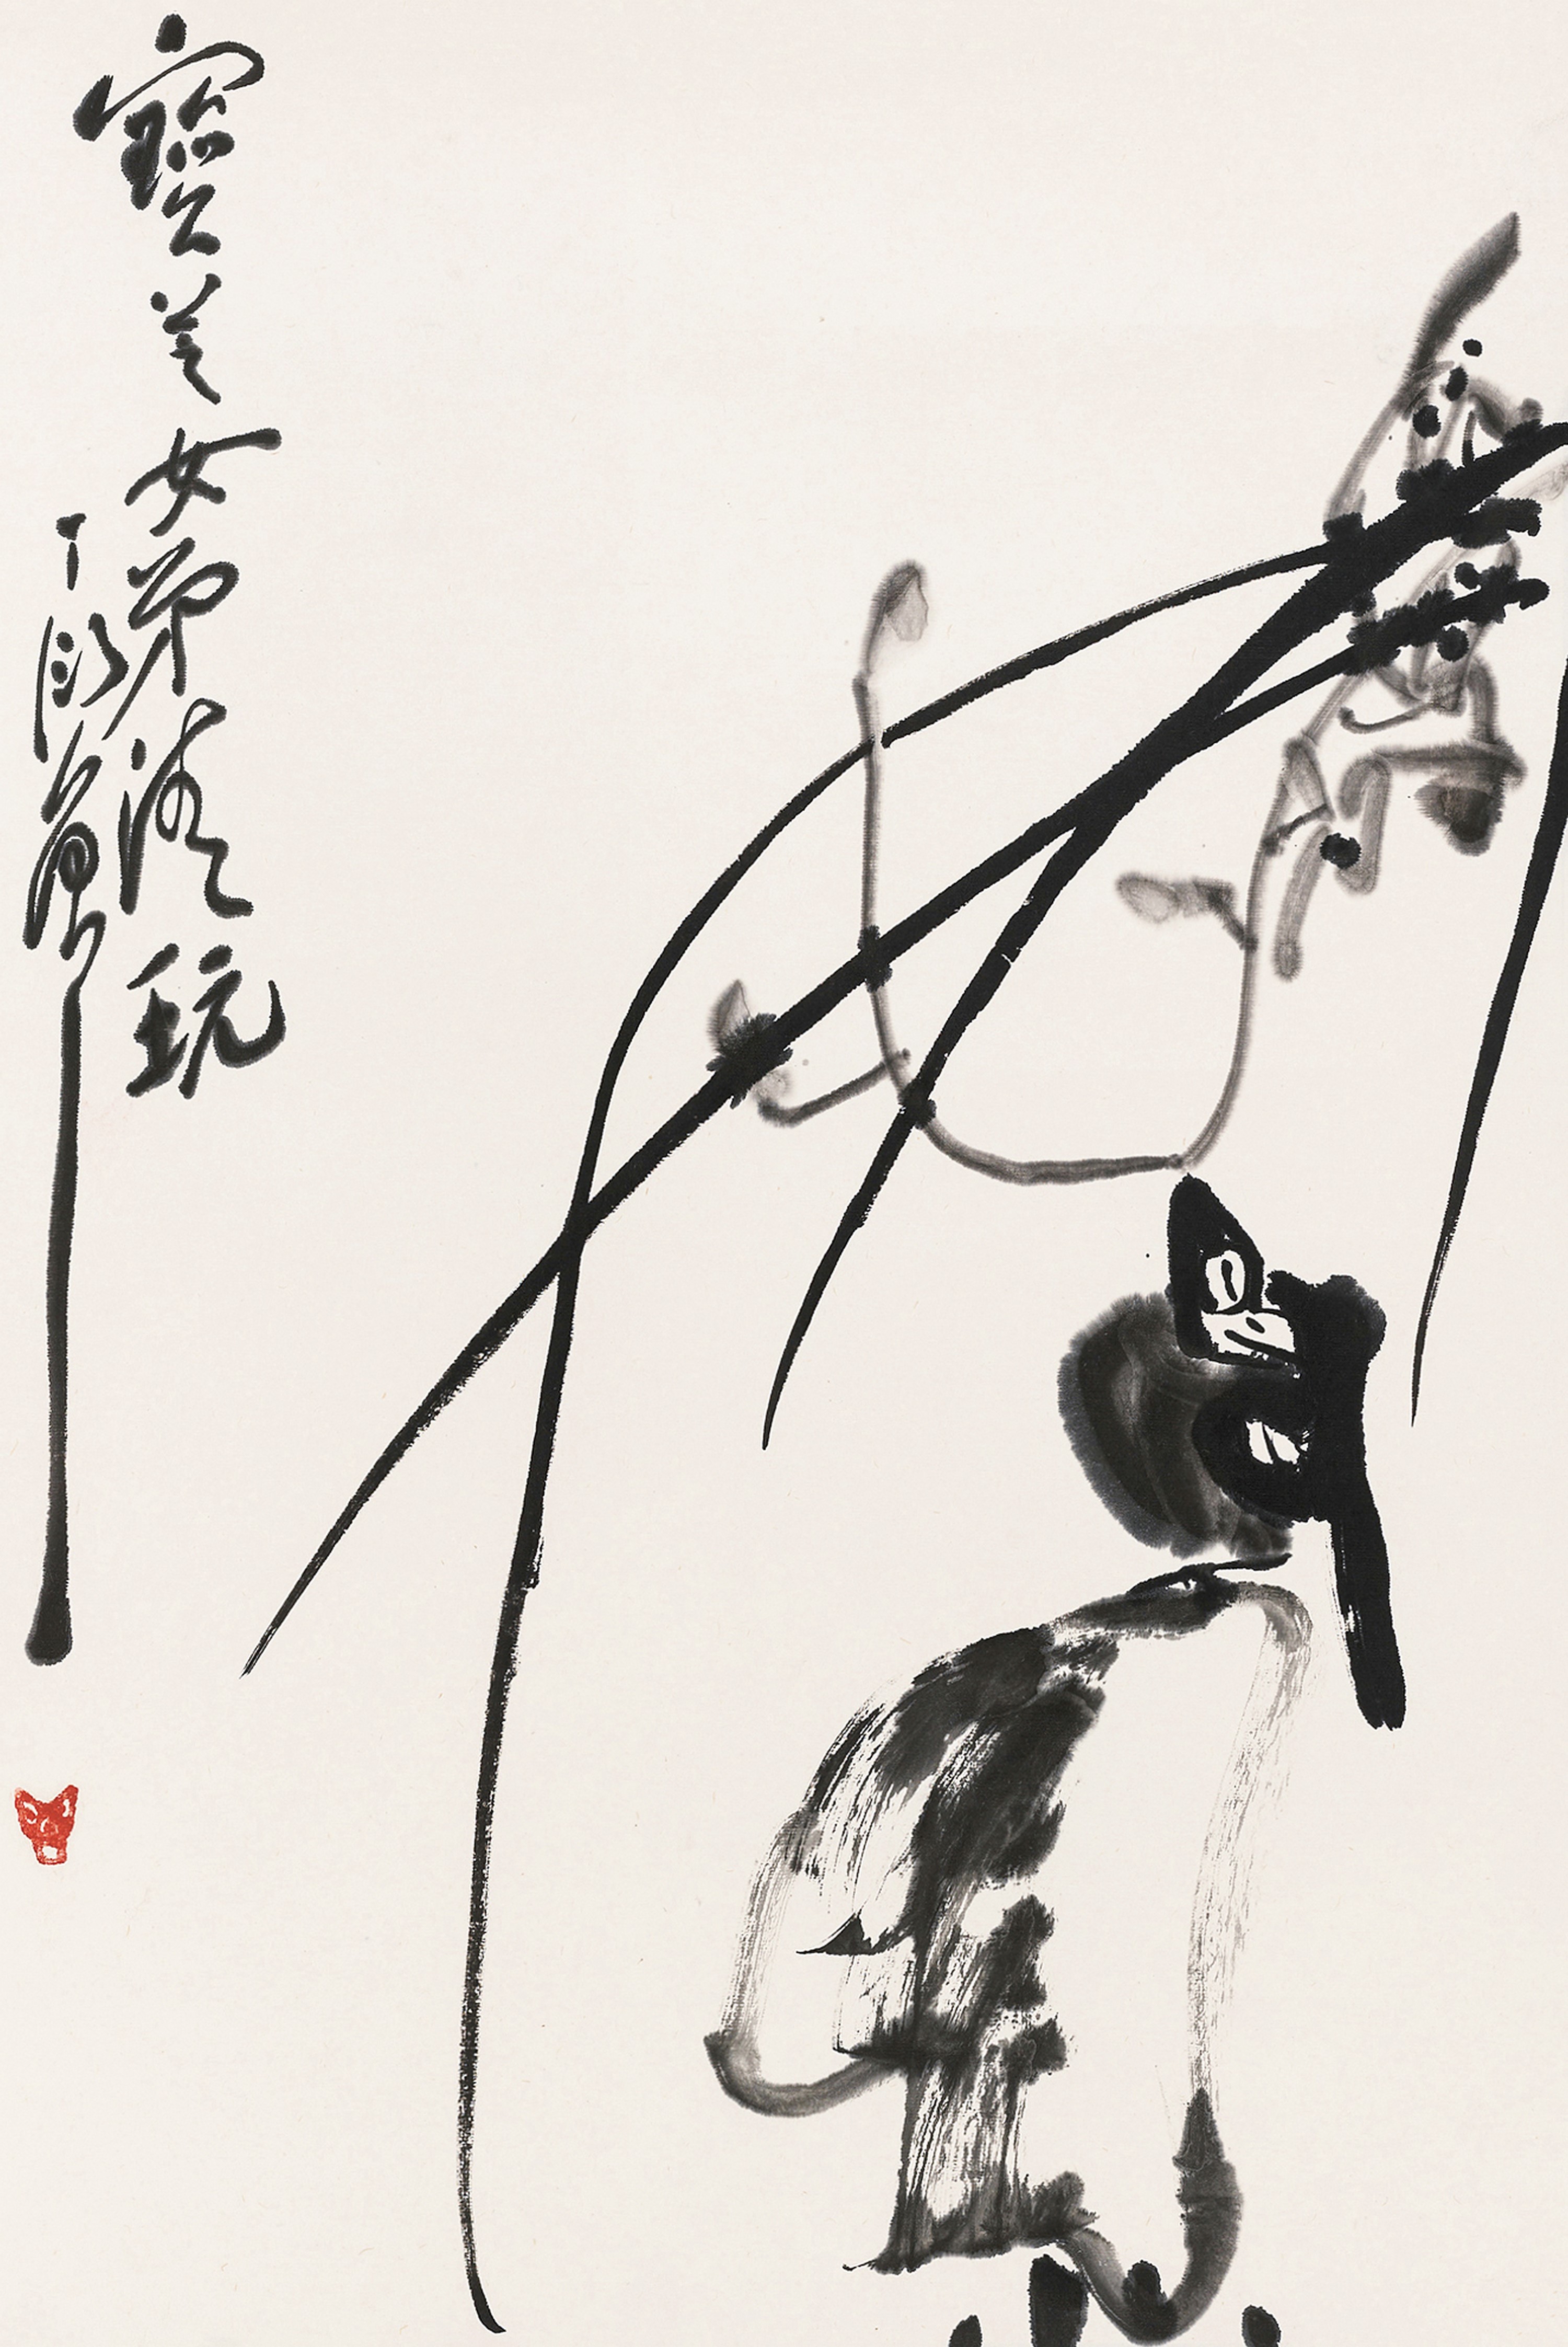 寶姜女弟清玩
丁衍庸